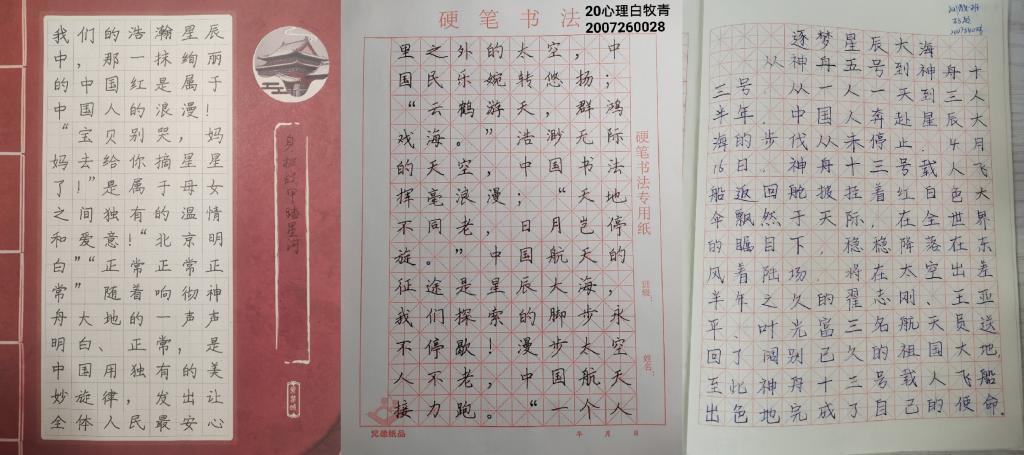 我们的浩瀚星辰
中，那一抹绚丽
的中国红是属于
中国人的浪漫！
“宝贝别哭，妈
妈去给你摘星星
了！”是属于母女
之间独有的温情
和爱意！“北京明
白”“正常正常正
常”随着响彻神
舟大地的一声声
明白、正常，是
中国用独有的美
妙旋律，发出让
全体人民最安心
硬笔书法
20心理白牧青
2007260028
里之外的太空，中
国民乐婉转悠扬；
“云鹤游天，群鸿
戏海。”浩渺无际
的天空，中国书法
挥毫浪漫；“天地
不同老，日月岂停
旋。”中国航天的
征途是星辰大海，
我们探索的脚步永
不停歇！漫步太空
人不老，中国航天
接力跑。“一个人
硬笔书法专用纸
班级：
姓名：
年 月 日
逐梦星辰大海
从神舟五号到神舟十
三号，从一人一天到三人
半年，中国人奔赴星辰大
海的步伐从未停止。4月
16日，神舟十三号载人飞
船返回舱拖拽着红白色大
伞飘然于天际，在全世界
的瞩目下，稳稳降落在东
风着陆场。将在太空出差
半年之久的翟志刚、王亚
平、叶光富三名航天员送
回了阔别已久的祖国大地，
至此神舟十三号载人飞船
出色地完成了自己的使命。